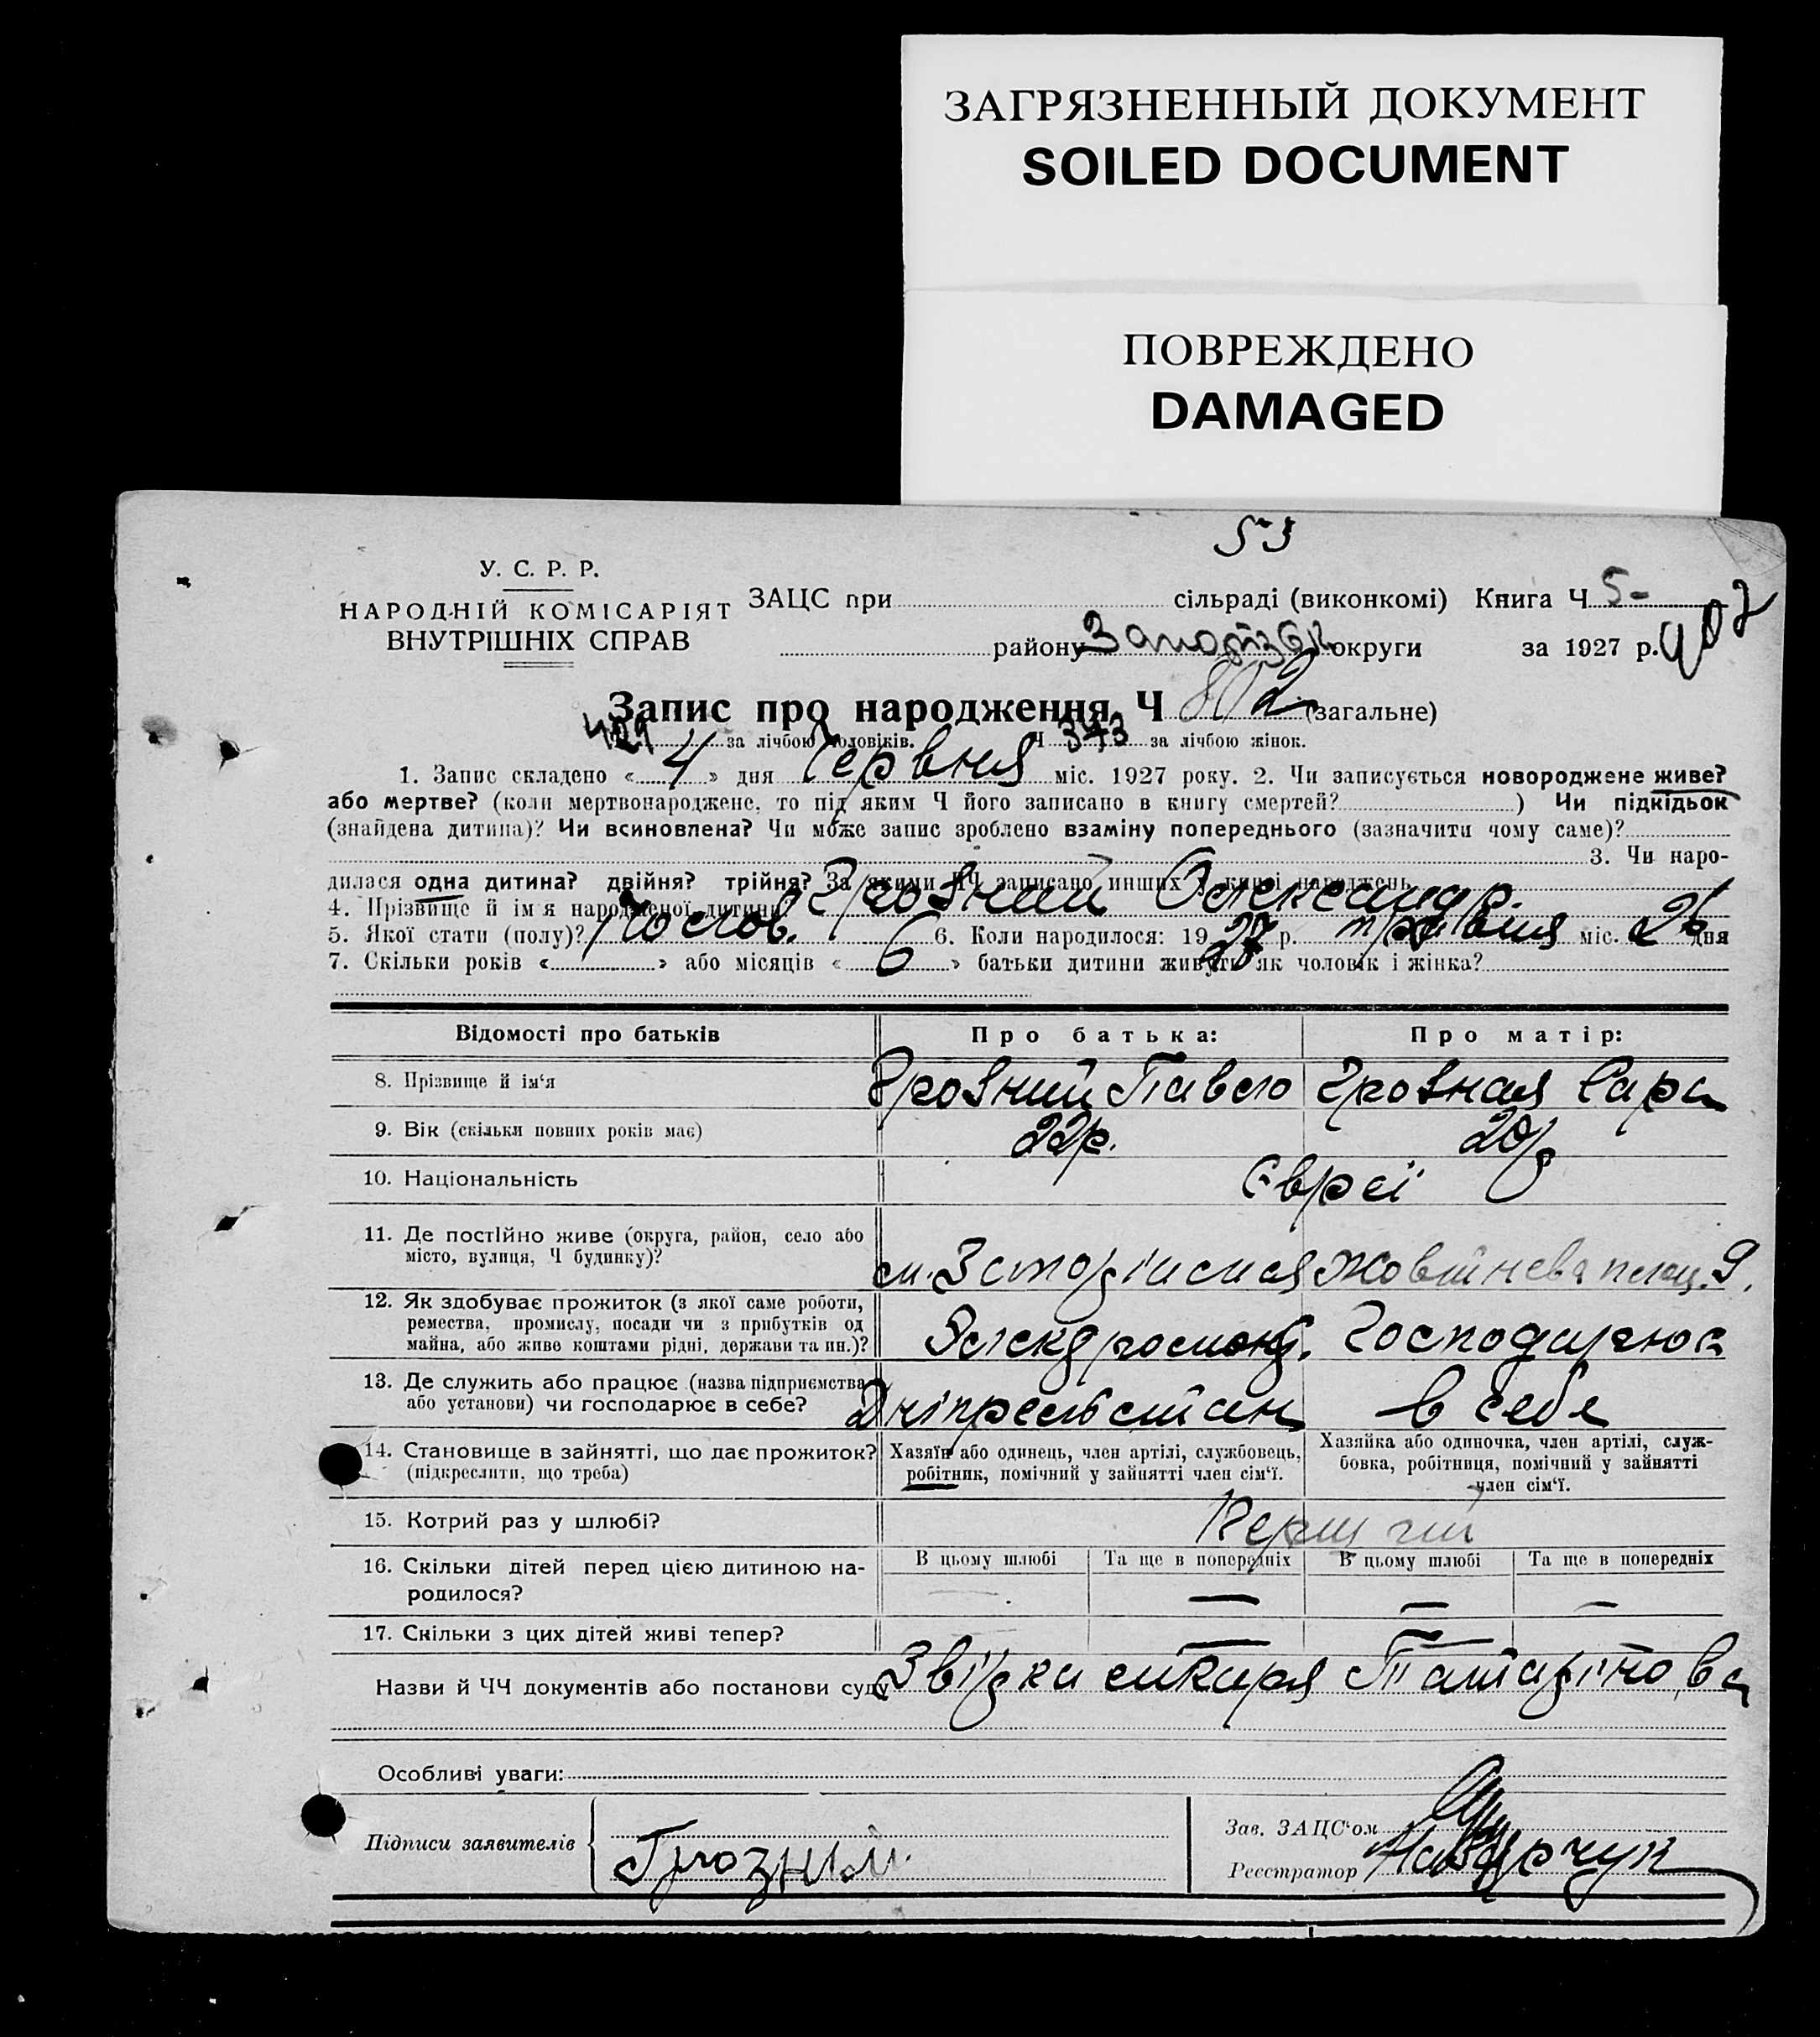 ЗАГРЯЗНЕННЫЙ ДОКУМЕНТ
SOILED DOCUMENT
ПОВРЕЖДЕНО
DAMAGED
53
У. С. Р. Р.
НАРОДНІЙ КОМІСАРІЯТ
ВНУТРІШНІХ СПРАВ
ЗАЦС при сільраді (виконкомі) Книга Ч 5-
району округи за 1927 р.
Запис про народження Ч 802 (загальне)
429 за лічбою чоловіків. Ч 373 за лічбою жінок.
1. Запис складено « 4 » дня Червня міс. 1927 року. 2. Чи записується новороджене живе?
або мертве? (коли мертвонароджене, то під яким Ч його записано в книгу смертей? ) Чи підкідьок
(знайдена дитина)? Чи всиновлена? Чи може запис зроблено взаміну попереднього (зазначити чому саме)?
3. Чи наро-
дилася одна дитина? двійня? трійня? За якими ЧЧ записано инших у книзі народжень
4. Прізвище й ім'я народженої дитини: Грозний Олександр.
5. Якої стати (полу)? Чолов. 6. Коли народилося: 1927 р. травня міс. 26 дня
7. Скільки років « » або місяців « 6 » батьки дитини живуть як чоловік і жінка?
Відомості про батьків Про батька: Про матір:
8. Прізвище й ім'я Грозний Павло Грозная Сара
9. Вік (скільки повних років має) 22р. 20р
10. Національність Євреї
11. Де постійно живе (округа, район, село або
місто, вулиця, Ч будинку)? Жовтнева площ. 9.
12. Як здобуває прожиток (з якої саме роботи,
ремества, промислу, посади чи з прибутків од
майна, або живе коштами рідні, держави та ин.)? Господарює
13. Де служить або працює (назва підприємства
або установи) чи господарює в себе? Дніпрельстан в себе
14. Становище в зайнятті, що дає прожиток?
(підкреслити, що треба)
Хазяїн або одинець, член артілі, службовець,
робітник, помічний у зайнятті член сім'ї.
Хазяйка або одиночка, член артілі, служ-
бовка, робітниця, помічний у зайнятті
член сім'ї.
15. Котрий раз у шлюбі? Перший
16. Скільки дітей перед цією дитиною на-
родилося?
В цьому шлюбі Та ще в попередніх В цьому шлюбі Та ще в попередніх
— — — —
17. Скільки з цих дітей живі тепер? — — —
Назви й ЧЧ документів або постанови суду Звізка лікаря Татарінова
Особливі уваги:
Підписи заявителів Грозный
Зав. ЗАЦС'ом
Реєстратор